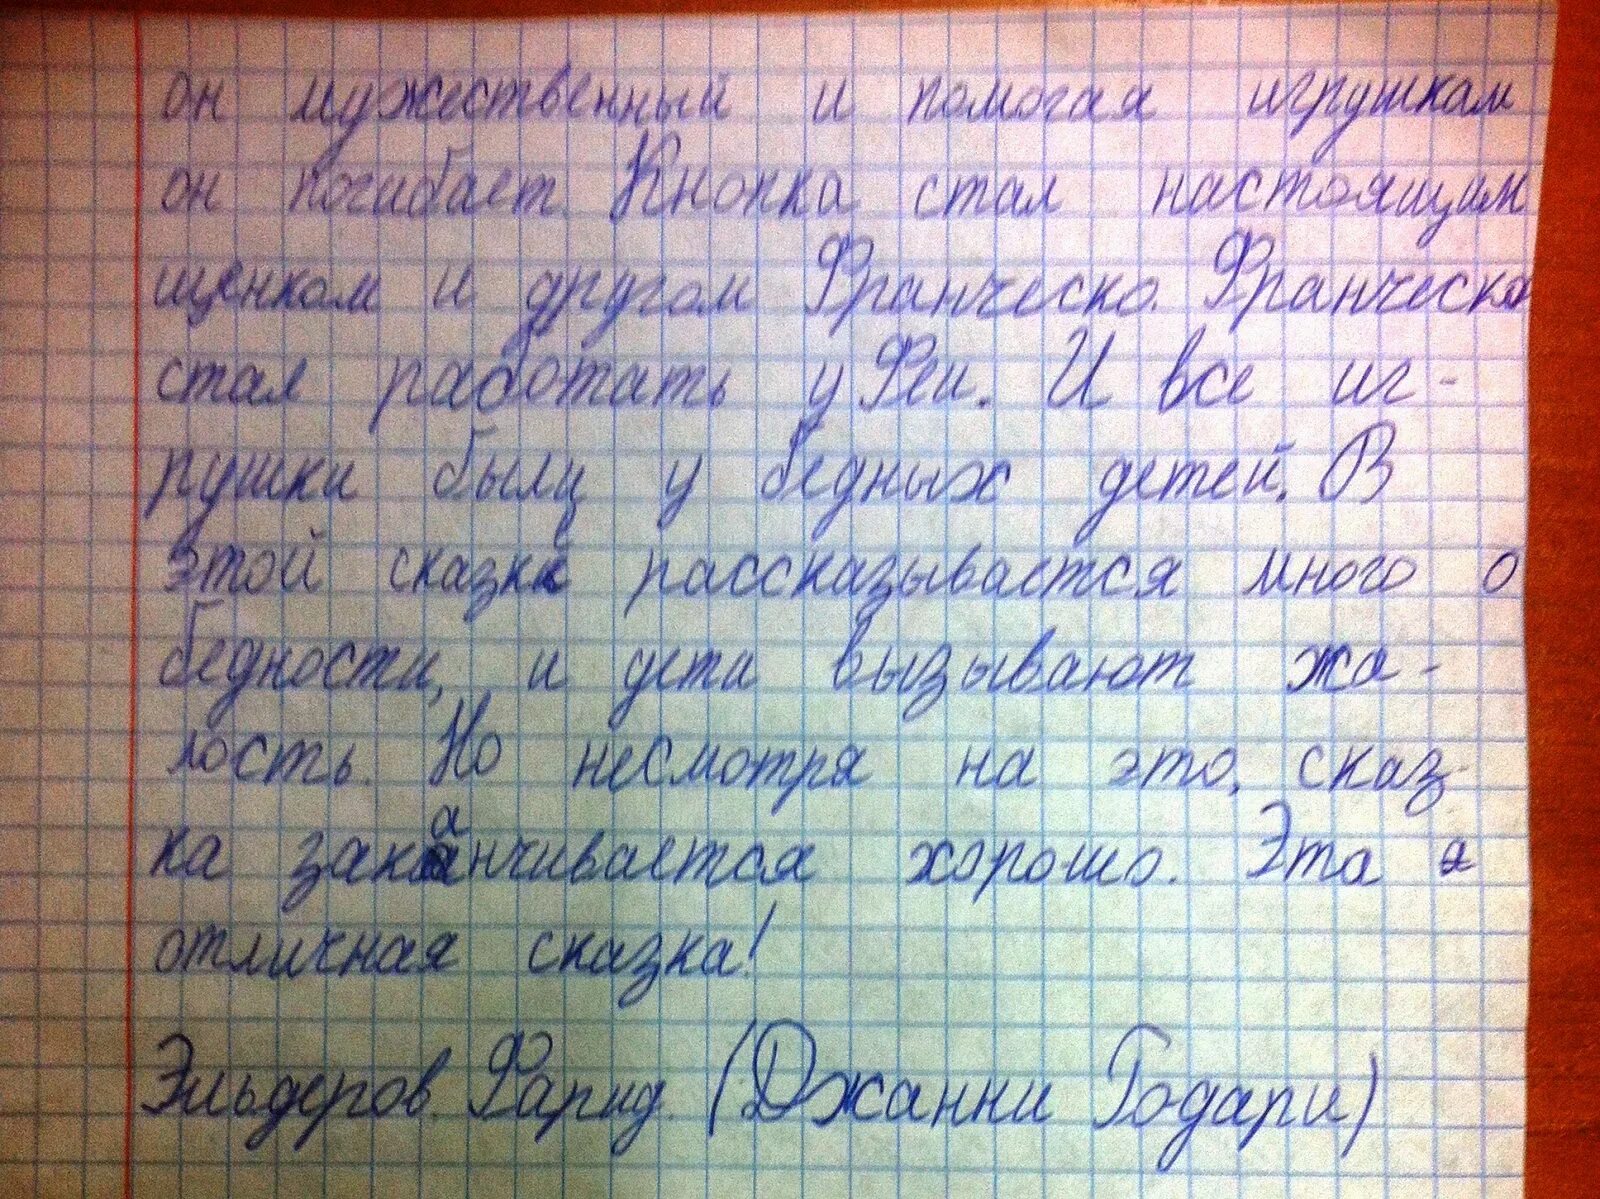 он мужественный и помогая игрушкам
он погибает. Кнопка стал настоящим
щенком и другом Франческо. Франческо
стал работать у Феи. И все иг-
рушки были у бедных детей. В
этой сказке рассказывается много о
бедности, и дети вызывают жа-
лость. Но несмотря на это, сказ-
ка заканчивается хорошо. Эта
отличная сказка!
Эльдеров Фарид. (Джанни Родари)